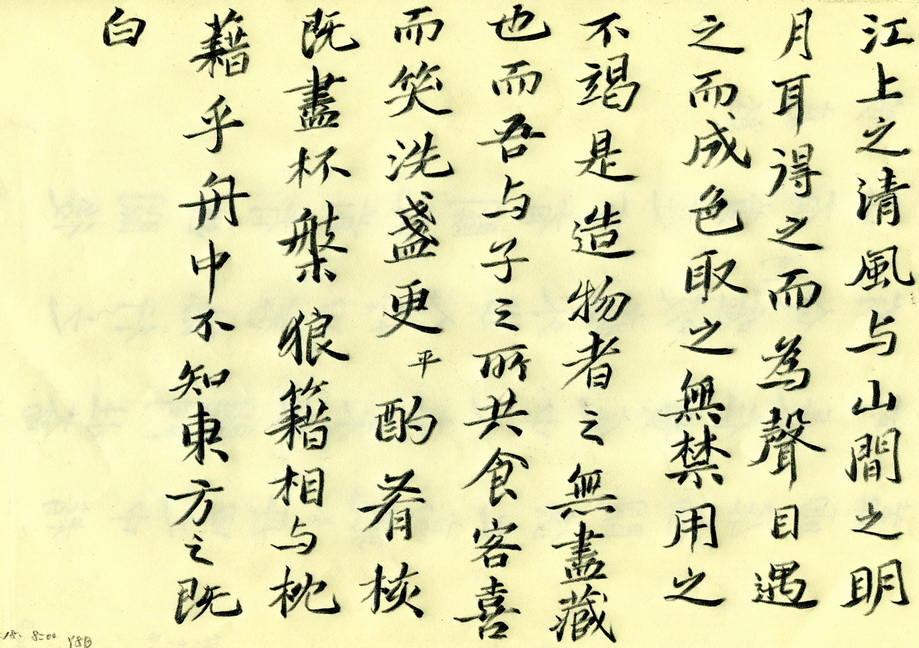 江上之清風与山間之明
月耳得之而為聲目遇
之而成色取之無禁用之
不竭是造物者之無盡藏
也而吾与子之所共食客喜
而笑洗盞更平酌肴核
既盡杯槃狼籍相与枕
藉乎舟中不知東方之既
白
18. 8=00